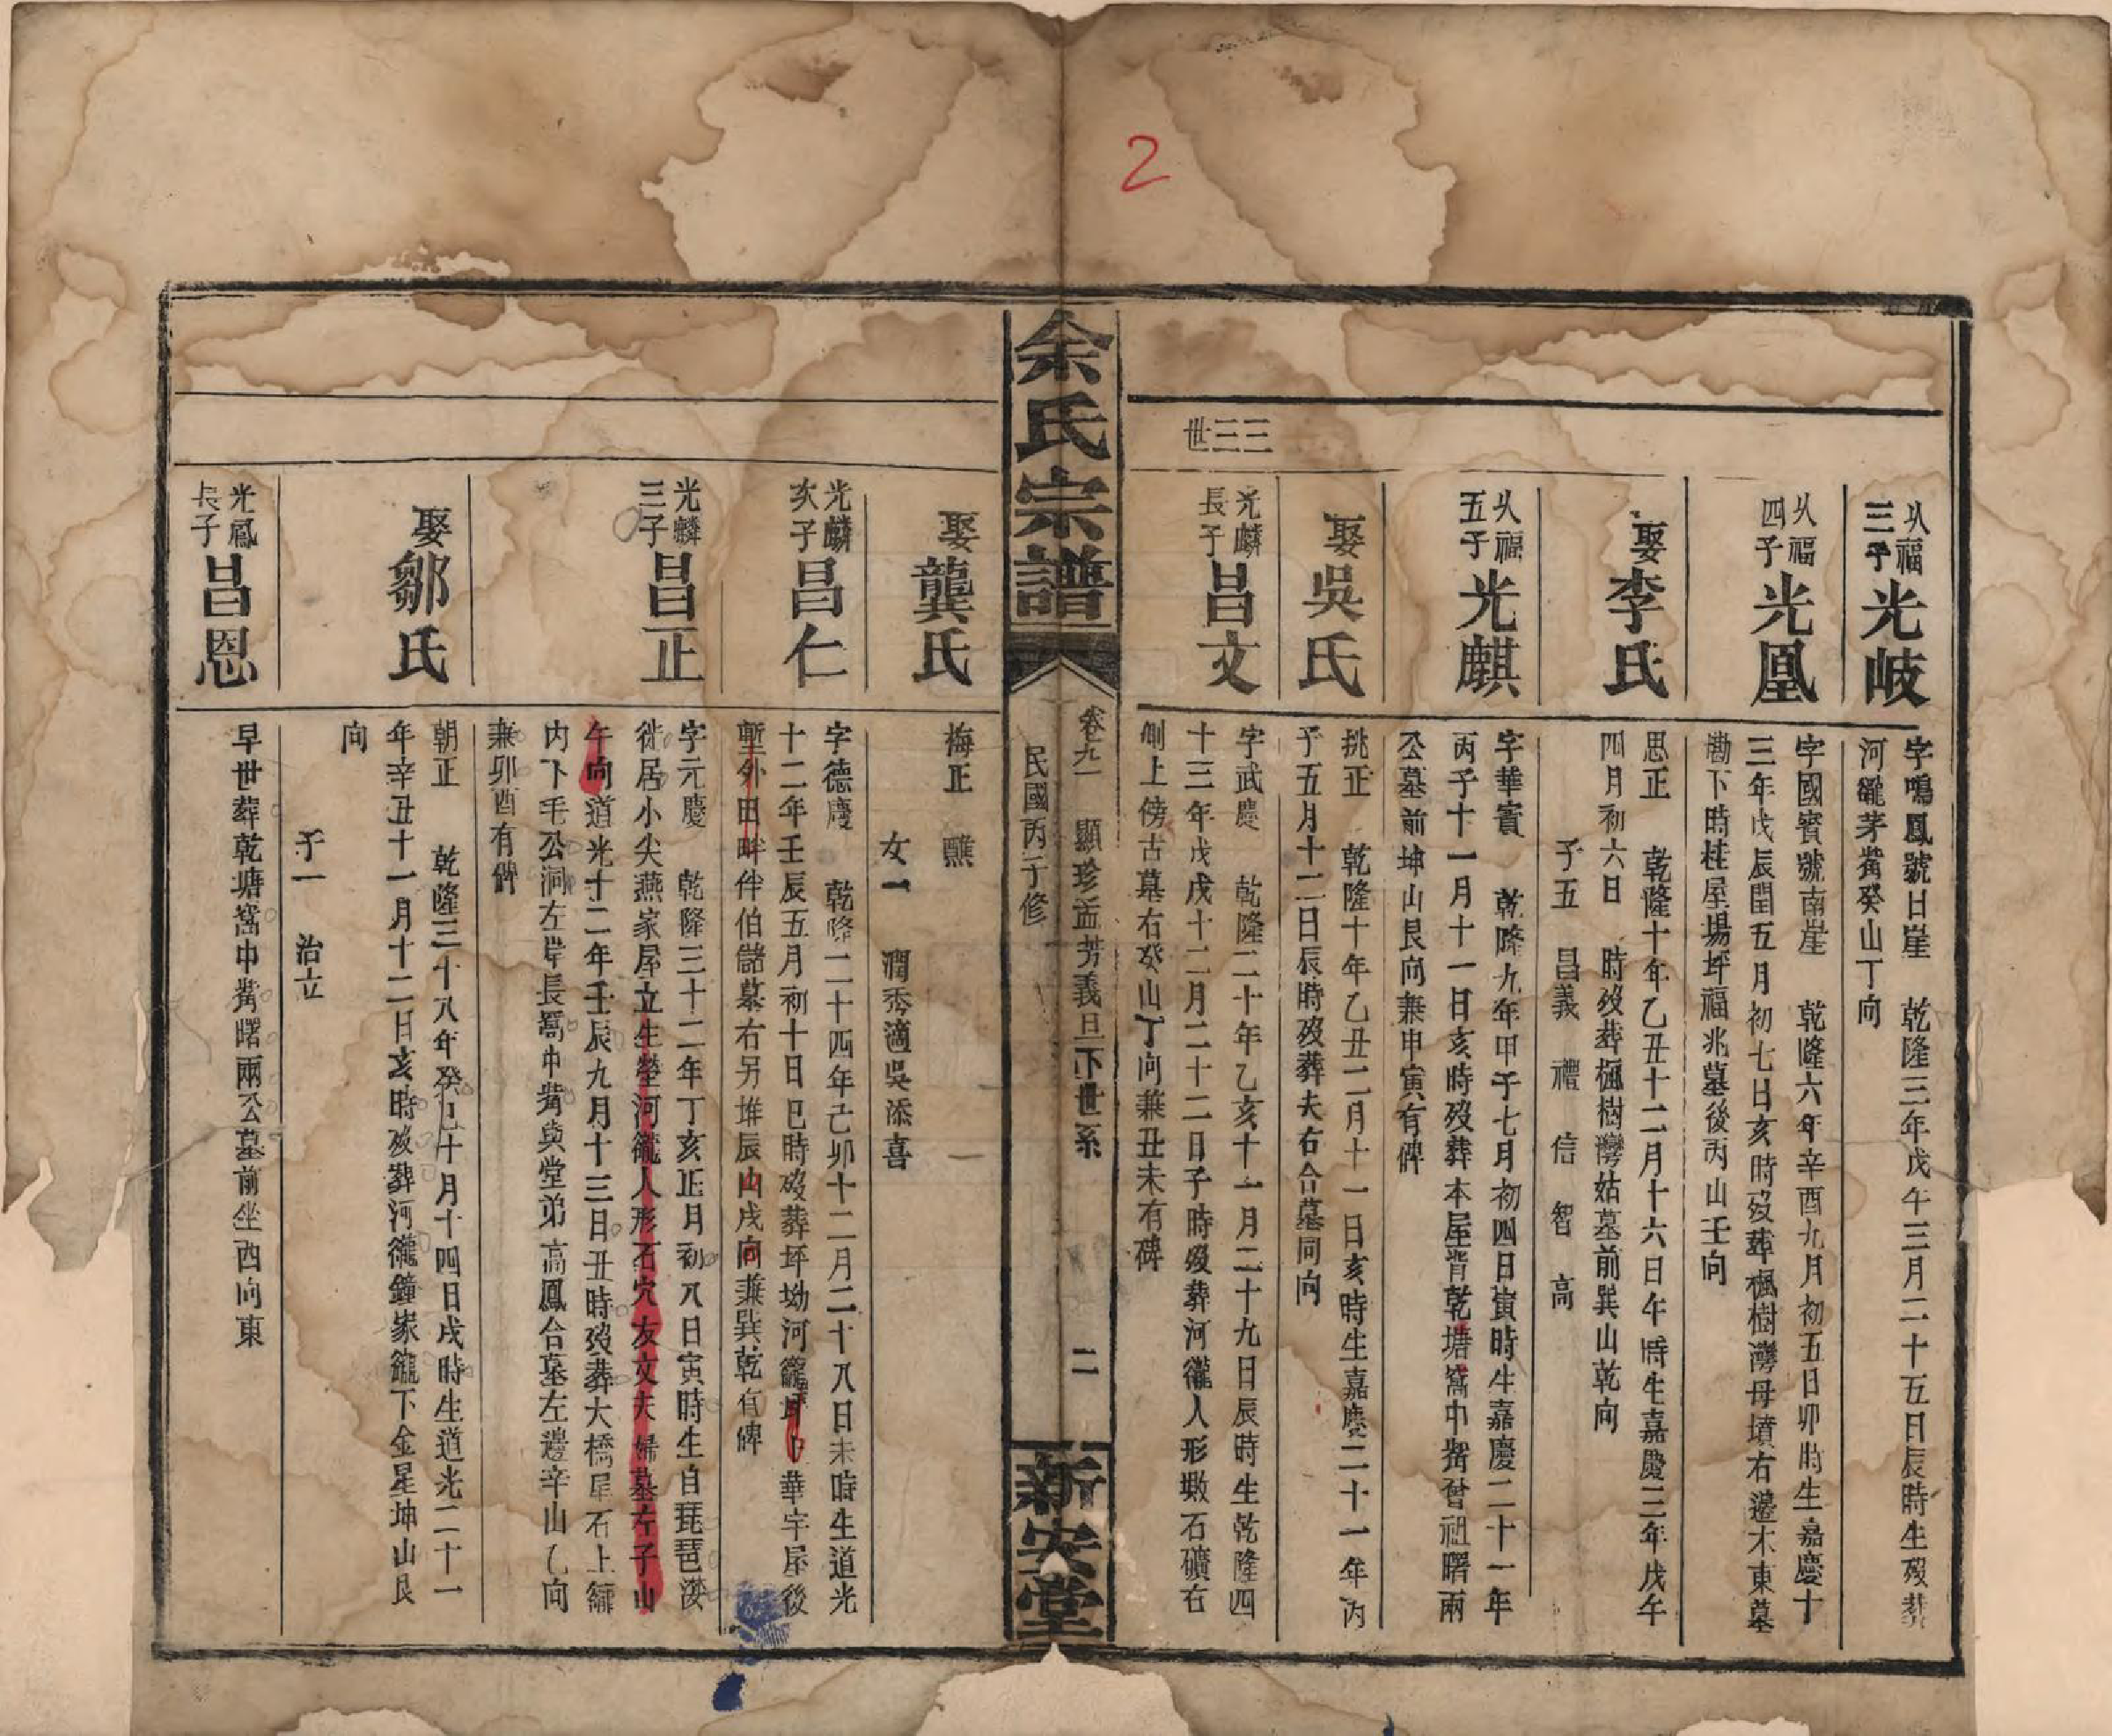 2
三三世
以福三子光岐
字鳴鳳號日崖 乾隆三年戊午三月二十五日辰時生歿葬
河籠茅觜癸山丁向
以福四子光凰
字國賓號南崖 乾隆六年辛酉九月初五日卯時生嘉慶十
三年戊辰閏五月初七日亥時歿葬楓樹灣母墳右邊木東墓
勘下時桂屋場坪福兆墓後丙山壬向
娶李氏
思正 乾隆十年乙丑十二月十六日午時生嘉慶三年戊午
四月初六日 時歿葬楓樹灣姑墓前巽山乾向
子五 昌義 禮 信 智 高
以福五子光麒
字華賓 乾隆九年甲子七月初四日寅時生嘉慶二十一年
丙子十一月十一日亥時歿葬本屋背乾塘窩中觜曾祖曙兩
公墓前坤山艮向兼申寅有碑
娶吳氏
挑正 乾隆十年乙丑二月十一日亥時生嘉慶二十一年丙
子五月十二日辰時歿葬夫右合墓同向
光麟長子昌文
字武慶 乾隆二十年乙亥十一月二十九日辰時生乾隆四
十三年戊戌十二月二十二日子時歿葬河籠人形墩石礦右
側上傍古墓右癸山丁向兼丑未有碑
余氏宗譜
卷九一 顯珍孟芳義旦下世系 二
民國丙子修
新安堂
娶龔氏
梅正 醮
女一 潤秀適吳添喜
光麟次子昌仁
字德慶 乾隆二十四年己卯十二月二十八日未時生道光
十二年壬辰五月初十日巳時歿葬坪坳河籠中華宇屋後
塹外田畔伴伯儲墓右另堆辰山戌向兼巽乾有碑
光麟三子昌正
字元慶 乾隆三十二年丁亥正月初八日寅時生自琵琶漤
徙居小尖燕家屋立生塋河籠人形石穴友文夫婦墓左子山
午向道光十二年壬辰九月十三日丑時歿葬大橋犀石上籠
內下毛公洞左岸長窩中觜與堂弟高鳳合墓左邊辛山乙向
兼卯酉有碑
娶鄒氏
朝正 乾隆三十八年癸巳十月十四日戌時生道光二十一
年辛丑十一月十二日亥時歿葬河籠鐘家籠下金星坤山艮
向
子一 治立
光鳳長子昌恩
早世葬乾塘窩中觜曙兩公墓前坐西向東